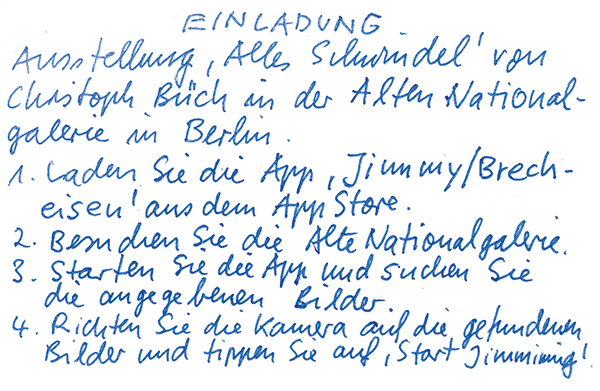 EINLADUNG
Ausstellung ‚Alles Schwindel' von
Christoph Büch in der Alten National-
galerie in Berlin.
1. Laden Sie die App ‚Jimmy/Brech-
eisen' aus dem App Store.
2. Besuchen Sie die Alte Nationalgalerie.
3. Starten Sie die App und suchen Sie
die angegebenen Bilder.
4. Richten Sie die Kamera auf die gefundenen
Bilder und tippen Sie auf ‚Start Jimming'.